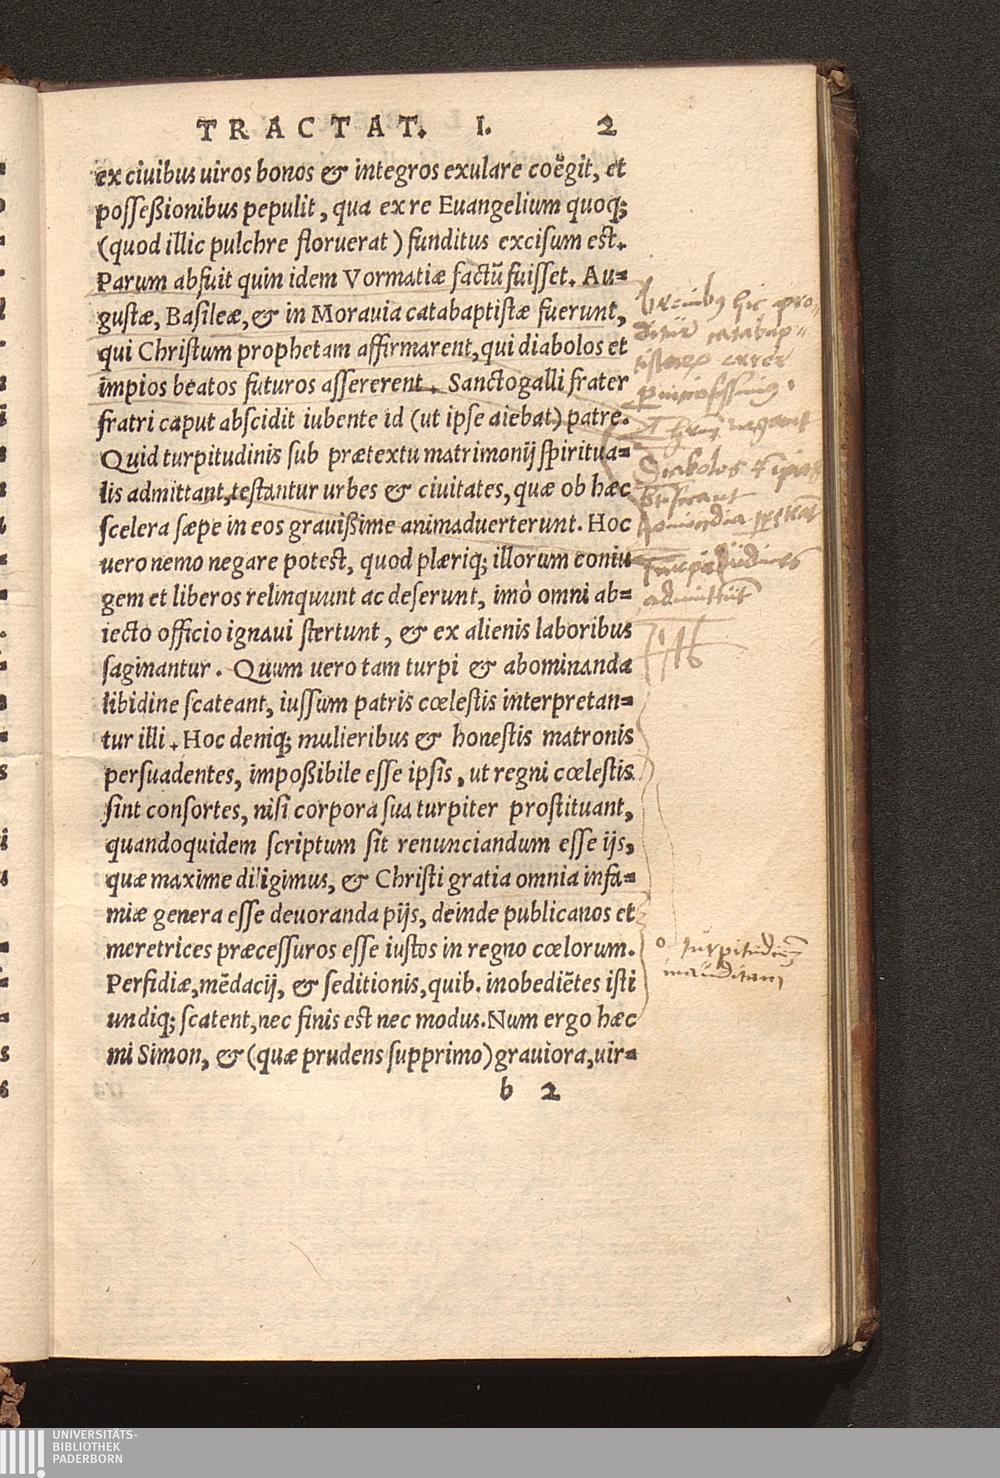 TRACTAT. I. 2
ex ciuibus uiros bonos & integros exulare coëgit, et
posseßionibus pepulit, qua ex re Euangelium quoq;
(quod illic pulchre floruerat) funditus excisum est.
Parum abfuit quin idem Vormatiæ factū fuisset. Au=
gustæ, Basileæ, & in Morauia catabaptistæ fuerunt,
qui Christum prophetam affirmarent, qui diabolos et
impios beatos futuros assererent. Sanctogalli frater
fratri caput abscidit iubente id (ut ipse aiebat) patre.
Quid turpitudinis sub prætextu matrimonij spiritua=
lis admittant, testantur urbes & ciuitates, quæ ob hæc
scelera sæpe in eos grauißime animaduerterunt. Hoc
uero nemo negare potest, quod plæriq; illorum coniu
gem et liberos relinquunt ac deserunt, imò omni ab=
iecto officio ignaui stertunt, & ex alienis laboribus
saginantur. Quum uero tam turpi & abominanda
libidine scateant, iussum patris cœlestis interpretan=
tur illi. Hoc deniq; mulieribus & honestis matronis
persuadentes, impoßibile esse ipsis, ut regni cœlestis
sint consortes, nisi corpora sua turpiter prostituant,
quandoquidem scriptum sit renunciandum esse ijs,
quæ maxime diligimus, & Christi gratia omnia infa=
miæ genera esse deuoranda pijs, deinde publicanos et
meretrices præcessuros esse iustos in regno cœlorum.
Perfidiæ, mēdacij, & seditionis, quib. inobediētes isti
undiq; scatent, nec finis est nec modus. Num ergo hæc
mi Simon, & (quæ prudens supprimo) grauiora, uir=
b 2
hic pro-
catabap-
Diabolos
admittūt
UNIVERSITÄTS-
BIBLIOTHEK
PADERBORN